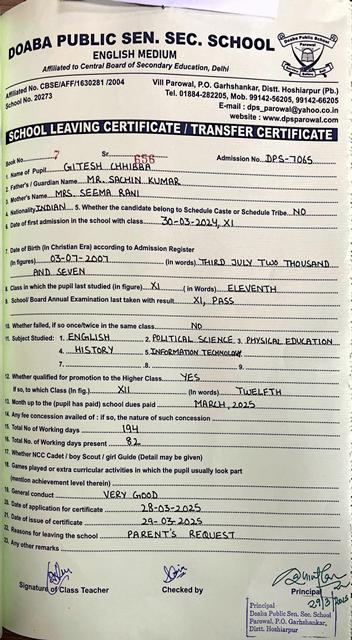 DOABA PUBLIC SEN. SEC. SCHOOL
ENGLISH MEDIUM
Affiliated to Central Board of Secondary Education, Delhi
Affiliated No. CBSE/AFF/1630281 /2004
School No. 20273
Vill Parowal, P.O. Garhshankar, Distt. Hoshiarpur (Pb.)
Tel. 01884-282205, Mob. 99142-56205, 99142-66205
E-mail : dps_parowal@yahoo.co.in
website : www.dpsparowal.com
SCHOOL LEAVING CERTIFICATE / TRANSFER CERTIFICATE
Book No. 7 Sr. 656 Admission No. DPS-7065
1. Name of Pupil GITESH CHHIBBA
2. Father's / Guardian Name MR. SACHIN KUMAR
3. Mother's Name MRS. SEEMA RANI
4. Nationality INDIAN 5. Whether the candidate belong to Schedule Caste or Schedule Tribe NO
6. Date of first admission in the school with class 30-03-2024, XI
7. Date of Birth (In Christian Era) according to Admission Register
(In figures) 03-07-2007 (In words) THIRD JULY TWO THOUSAND
AND SEVEN
8. Class in which the pupil last studied (in figure) XI (in Words) ELEVENTH
9. School/ Board Annual Examination last taken with result XI, PASS
10. Whether failed, if so once/twice in the same class NO
11. Subject Studied: 1. ENGLISH 2. POLITICAL SCIENCE 3. PHYSICAL EDUCATION
4. HISTORY 5. INFORMATION TECHNOLOGY
7. 8. 9.
12. Whether qualified for promotion to the Higher Class YES
If so, to which Class (In fig.) XII (In Words) TWELFTH
13. Month up to the (pupil has paid) school dues paid MARCH, 2025
14. Any fee concession availed of : if so, the nature of such concession
15. Total No of Working days 194
16. Total No. of Working days present 82
17. Whether NCC Cadet / boy Scout / girl Guide (Detail may be given)
18. Games played or extra curricular activities in which the pupil usually look part
(mention achievement level therein)
19. General conduct VERY GOOD
20. Date of application for certificate 28-03-2025
21. Date of issue of certificate 29-03-2025
22. Reasons for leaving the school PARENT'S REQUEST
23. Any other remarks
Signature of Class Teacher Checked by Principal
29/3/2025
Principal
Doaba Public Sen. Sec. School
Parowal, P.O. Garhshankar,
Distt. Hoshiarpur